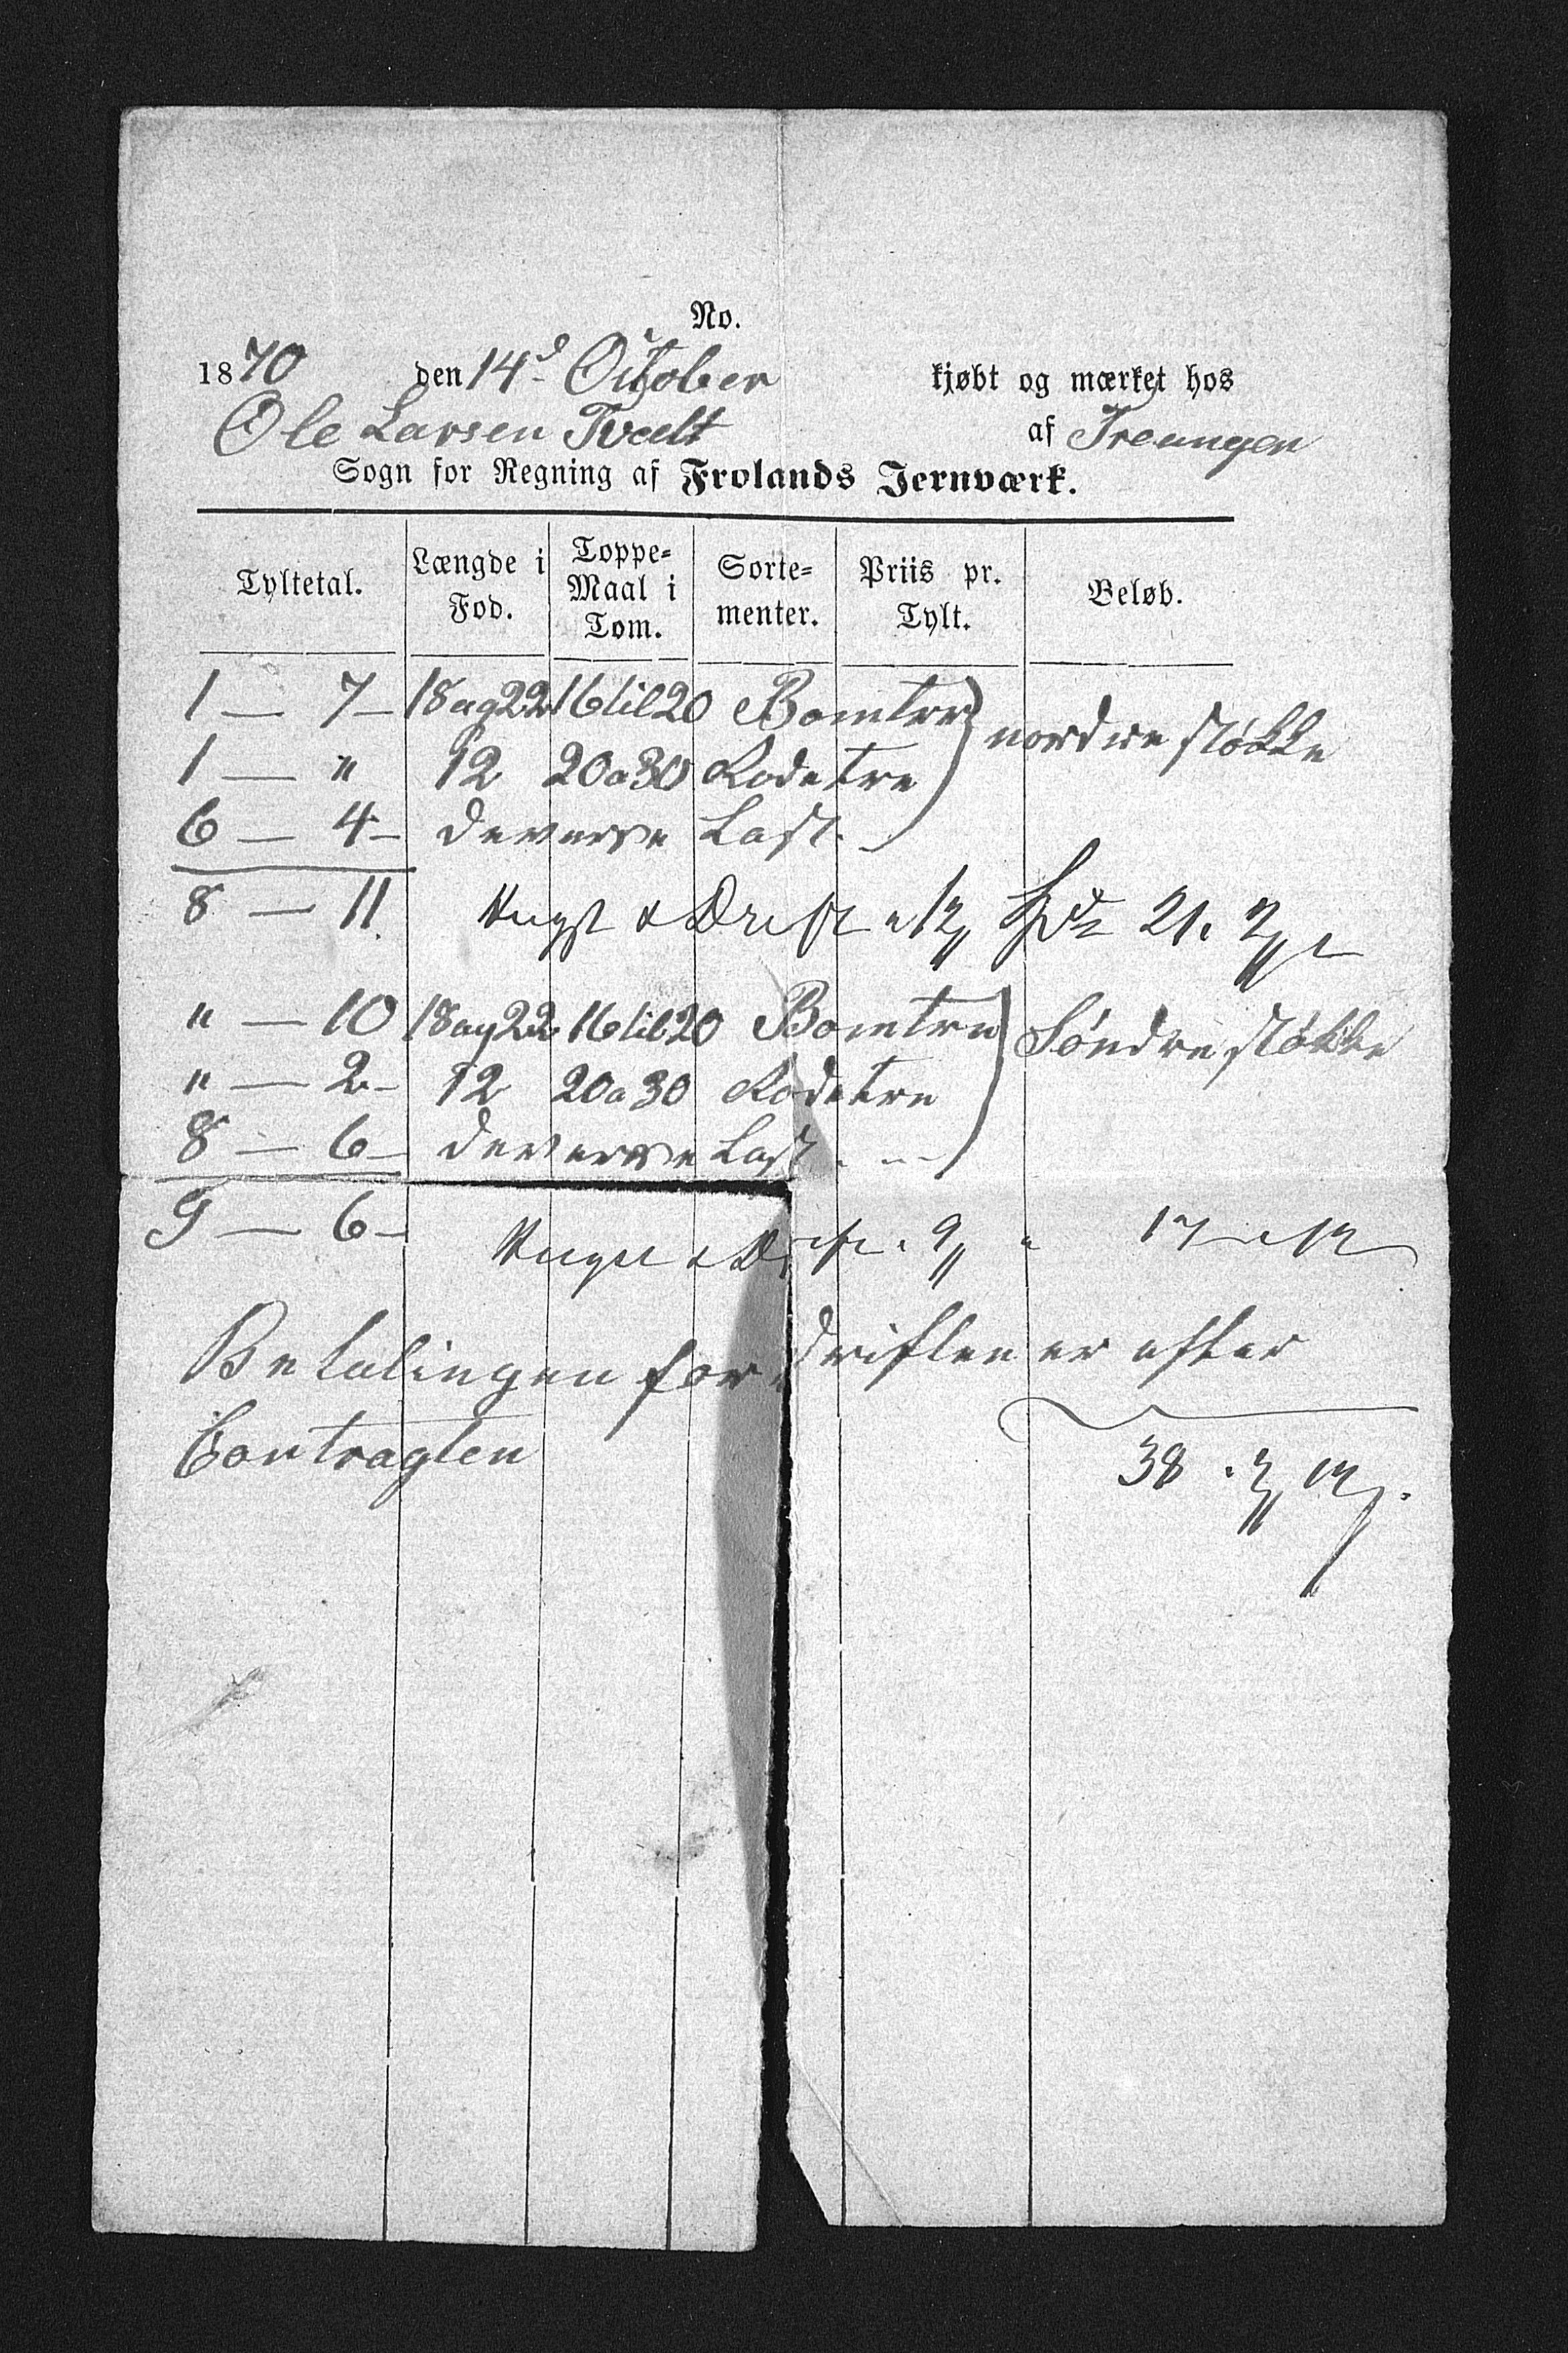 No.
1870 den 14d October kjøbt og mærket hos
Ole Larsen Tveelt af Treungen
Sogn for Regning af Frolands Jernværk.
Tyltetal. Længde i Fod. Toppe-Maal i Tom. Sorte-menter. Priis pr. Tylt. Beløb.
1 — 7 — 18 og 22 16 til 20 Bomtre
nordre støkke
1 — " 12 20 a 30 Rodetre
6 — 4 — deverse Last
8 — 11 Hugst & Drift 21.
" — 10 18 og 22 16 til 20 Bomtre
Søndre støkke
" — 2 — 12 20 a 30 Rodetre
8 — 6 — deverse Last
9 — 6 — Hugst & Drift 17
Betalingen for driften er efter
Contragten
38